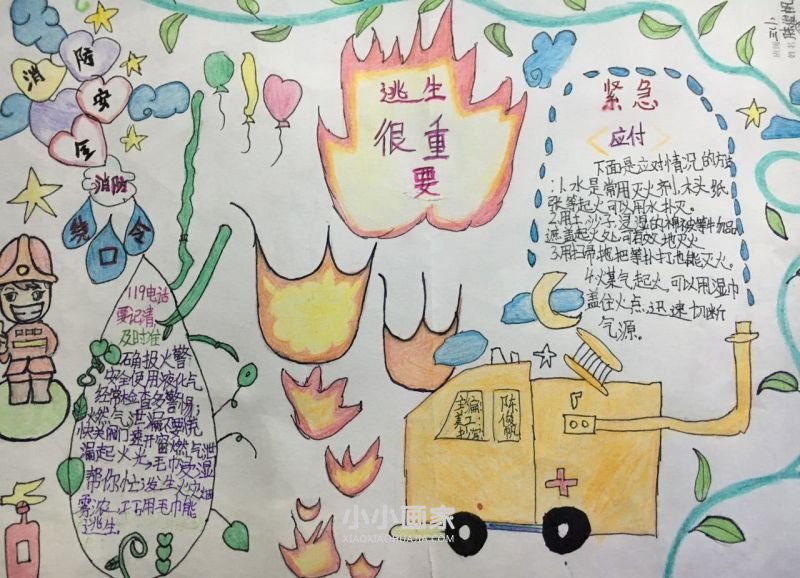 消防
安
全
消防
口令
119电话
要记清
及时准
确报火警
安全使用液化气
经常检查多警惕;
燃气泄漏不要慌
快关阀门莫开窗燃气泄
漏起火头毛巾
帮你忙发生火灾烟
雾浓工巧用毛巾能
逃生。
逃生
很重
要
紧急
应付
下面是应对情况的方法
:1.水是常用灭火剂,木头纸
张等起火可以用水扑灭。
2.用土沙子浸湿的棉被等物品
遮盖起火处可有效地灭火
3.用扫帚拖把等扑打也能灭火。
4.煤气起火,可以用湿巾
盖住火点,迅速切断
气源。
主编
美工:
陈
俊
帆
姓名
小小画家
XIAOXIAOHUAJIA.COM